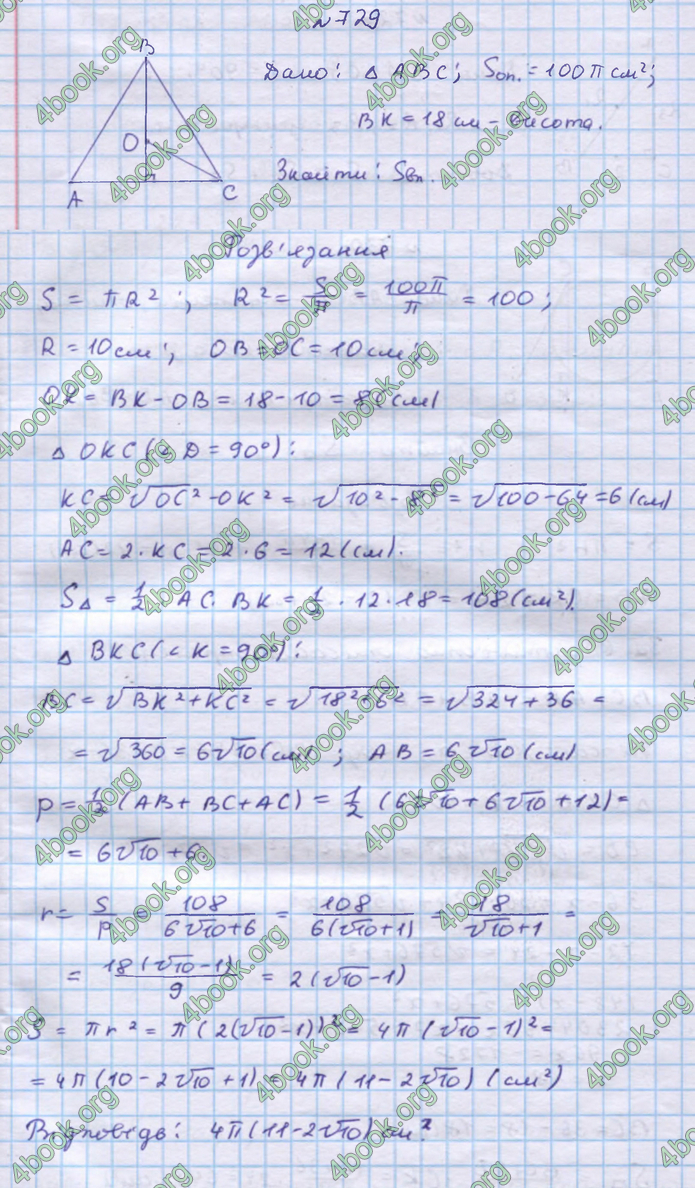 №729
B
O
A
C
Дано: △ABC; Sоп. = 100π см²;
BK = 18 см - висота.
Знайти: Sвп.
Розв'язання
S = πR²; R² = S/π = 100π/π = 100;
R = 10 см; OB = OC = 10 см;
OK = BK - OB = 18 - 10 = 8 (см)
△ OKC (∠D = 90°):
KC = √OC² - OK² = √10² - 8² = √100 - 64 = 6 (см)
AC = 2 · KC = 2 · 6 = 12 (см).
S△ = 1/2 · AC · BK = 1/2 · 12 · 18 = 108 (см²).
△ BKC (∠K = 90°):
BC = √BK² + KC² = √18² + 6² = √324 + 36 =
= √360 = 6√10 (см); AB = 6√10 (см)
p = 1/2 (AB + BC + AC) = 1/2 (6√10 + 6√10 + 12) =
= 6√10 + 6.
r = S/p = 108/6√10+6 = 108/6(√10+1) = 18/√10+1 =
= 18(√10-1)/9 = 2(√10-1)
S = πr² = π(2(√10-1))² = 4π(√10-1)² =
= 4π(10 - 2√10 + 1) = 4π(11 - 2√10) (см²)
Відповідь: 4π(11 - 2√10) см²
4book.org